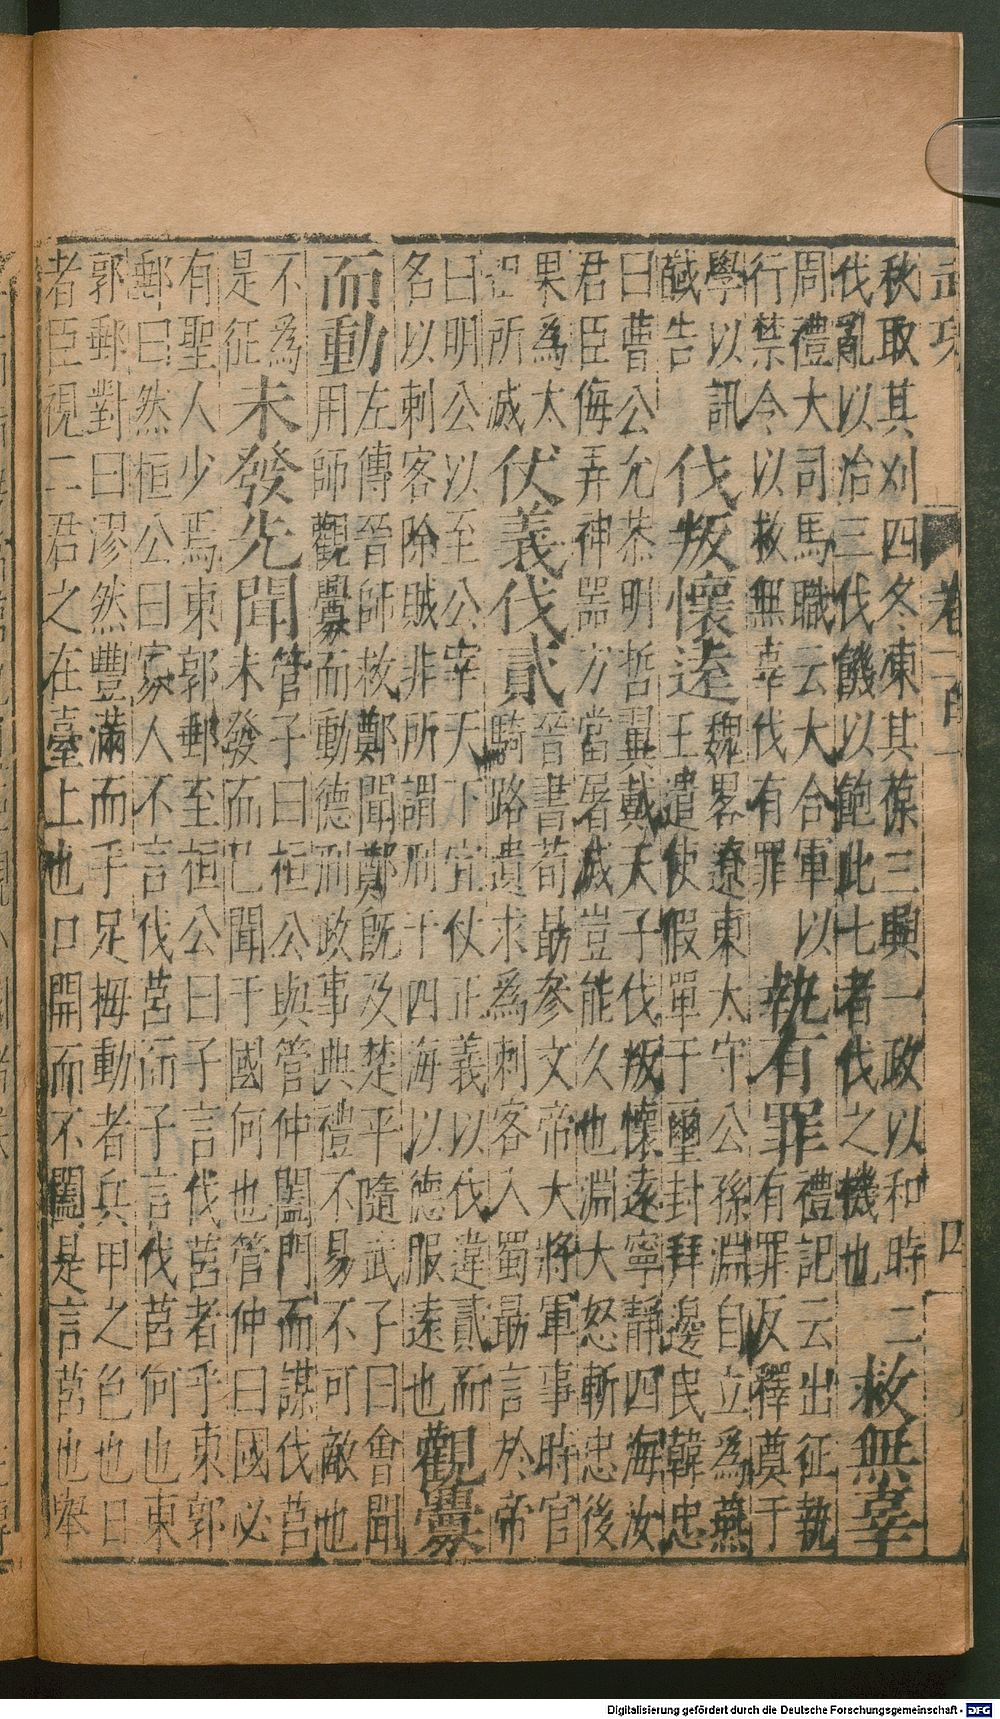 武功 卷一百一 四
秋取其刈四冬凍其葆三興一政以和時二
伐亂以治三伐饑以飽此七者伐之機也
救無辜
周禮大司馬職云大合軍以
行禁令以救無辜伐有罪
執有罪
禮記云出征執
有罪反釋奠于
學以訊
馘告
伐叛懷遠
魏畧遼東太守公孫淵自立為燕
王遣使假單于璽封拜邊民韓忠
曰曹公允恭明哲翼戴天子伐叛懷遠寧靜四海汝
君臣侮弄神器方當屠滅豈能久也淵大怒斬忠後
果為太
祖所滅
伏義伐貳
晉書荀勗參文帝大將軍事時官
騎路遺求為刺客入蜀勗言於帝
曰明公以至公宰天下宜仗正義以伐違貳而
名以刺客除賊非所謂刑于四海以德服遠也
觀釁
而動
左傳晉師救鄭聞鄭既及楚平隨武子曰會聞
用師觀釁而動德刑政事典禮不易不可敵也
不為
是征
未發先聞
管子曰桓公與管仲闔門而謀伐莒
未發而已聞于國何也管仲曰國必
有聖人少焉東郭郵至桓公曰子言伐莒者乎東郭
郵曰然桓公曰寡人不言伐莒而子言伐莒何也東
郭郵對曰漻然豐滿而手足拇動者兵甲之色也日
者臣視二君之在臺上也口開而不闔是言莒也舉
Digitalisierung gefördert durch die Deutsche Forschungsgemeinschaft - DFG